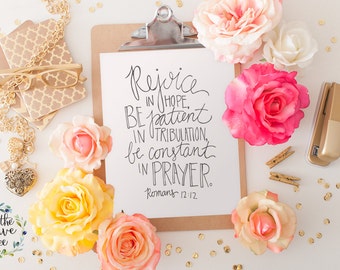 Rejoice
IN HOPE,
BE patient
IN TRIBULATION,
be CONSTANT
IN PRAYER.
Romans 12:12
the